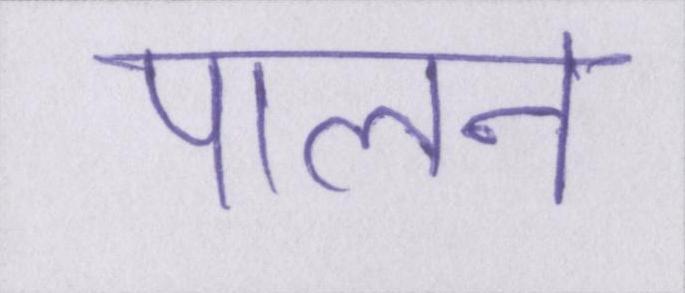 पालन